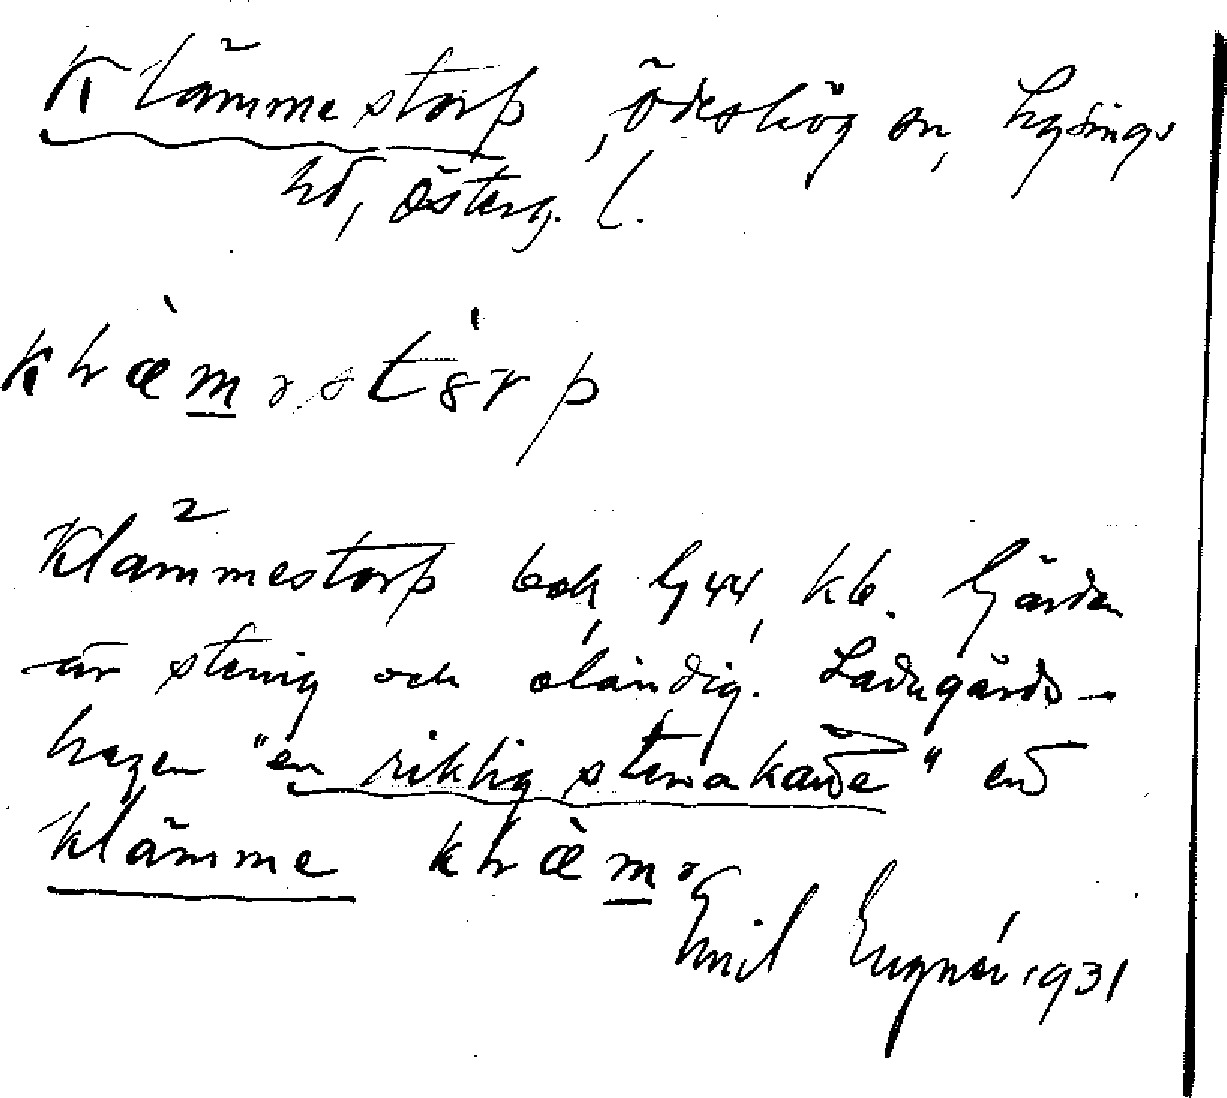 Klämmestorp, Ödeshög sn, Lysings
hd, Österg. l.
klämmestorp
Klämmestorp kb. Gården
är stenig och oländig. Ladugårds-
hagen "en riktig stenakade" en
klämme
Emil 1931